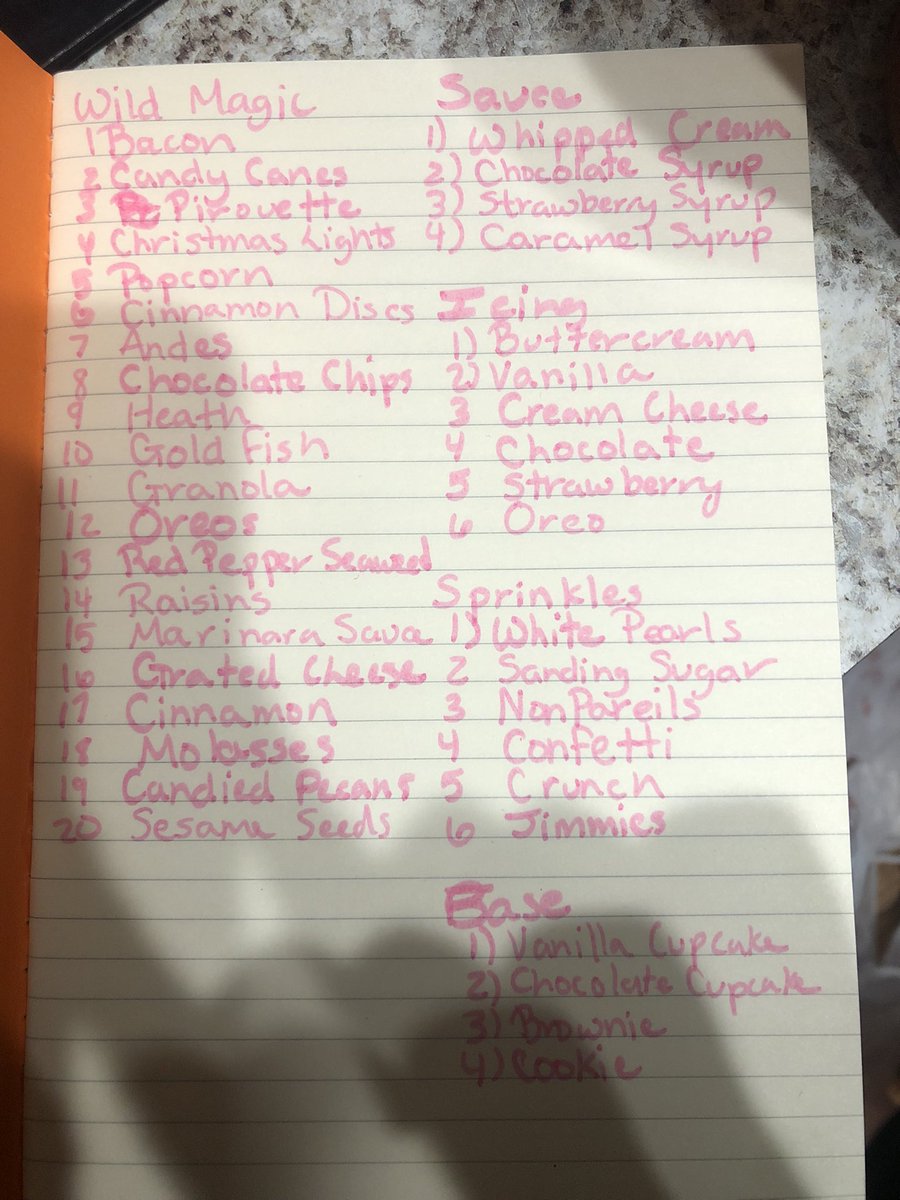 Wild Magic
1 Bacon
2 Candy Canes
3 Pirouette
4 Christmas Lights
5 Popcorn
6 Cinnamon Discs
7 Andes
8 Chocolate Chips
9 Heath
10 Gold Fish
11 Granola
12 Oreos
13 Red Pepper Seaweed
14 Raisins
15 Marinara Sava
16 Grated Cheese
17 Cinnamon
18 Molasses
19 Candied Pecans
20 Sesame Seeds
Sauce
1) Whipped Cream
2) Chocolate Syrup
3) Strawberry Syrup
4) Caramel Syrup
Icing
1) Buttercream
2) Vanilla
3 Cream Cheese
4 Chocolate
5 Strawberry
6 Oreo
Sprinkles
1) White Pearls
2 Sanding Sugar
3 NonPareils
4 Confetti
5 Crunch
6 Jimmies
Base
1) Vanilla Cupcake
2) Chocolate Cupcake
3) Brownie
4) Cookie